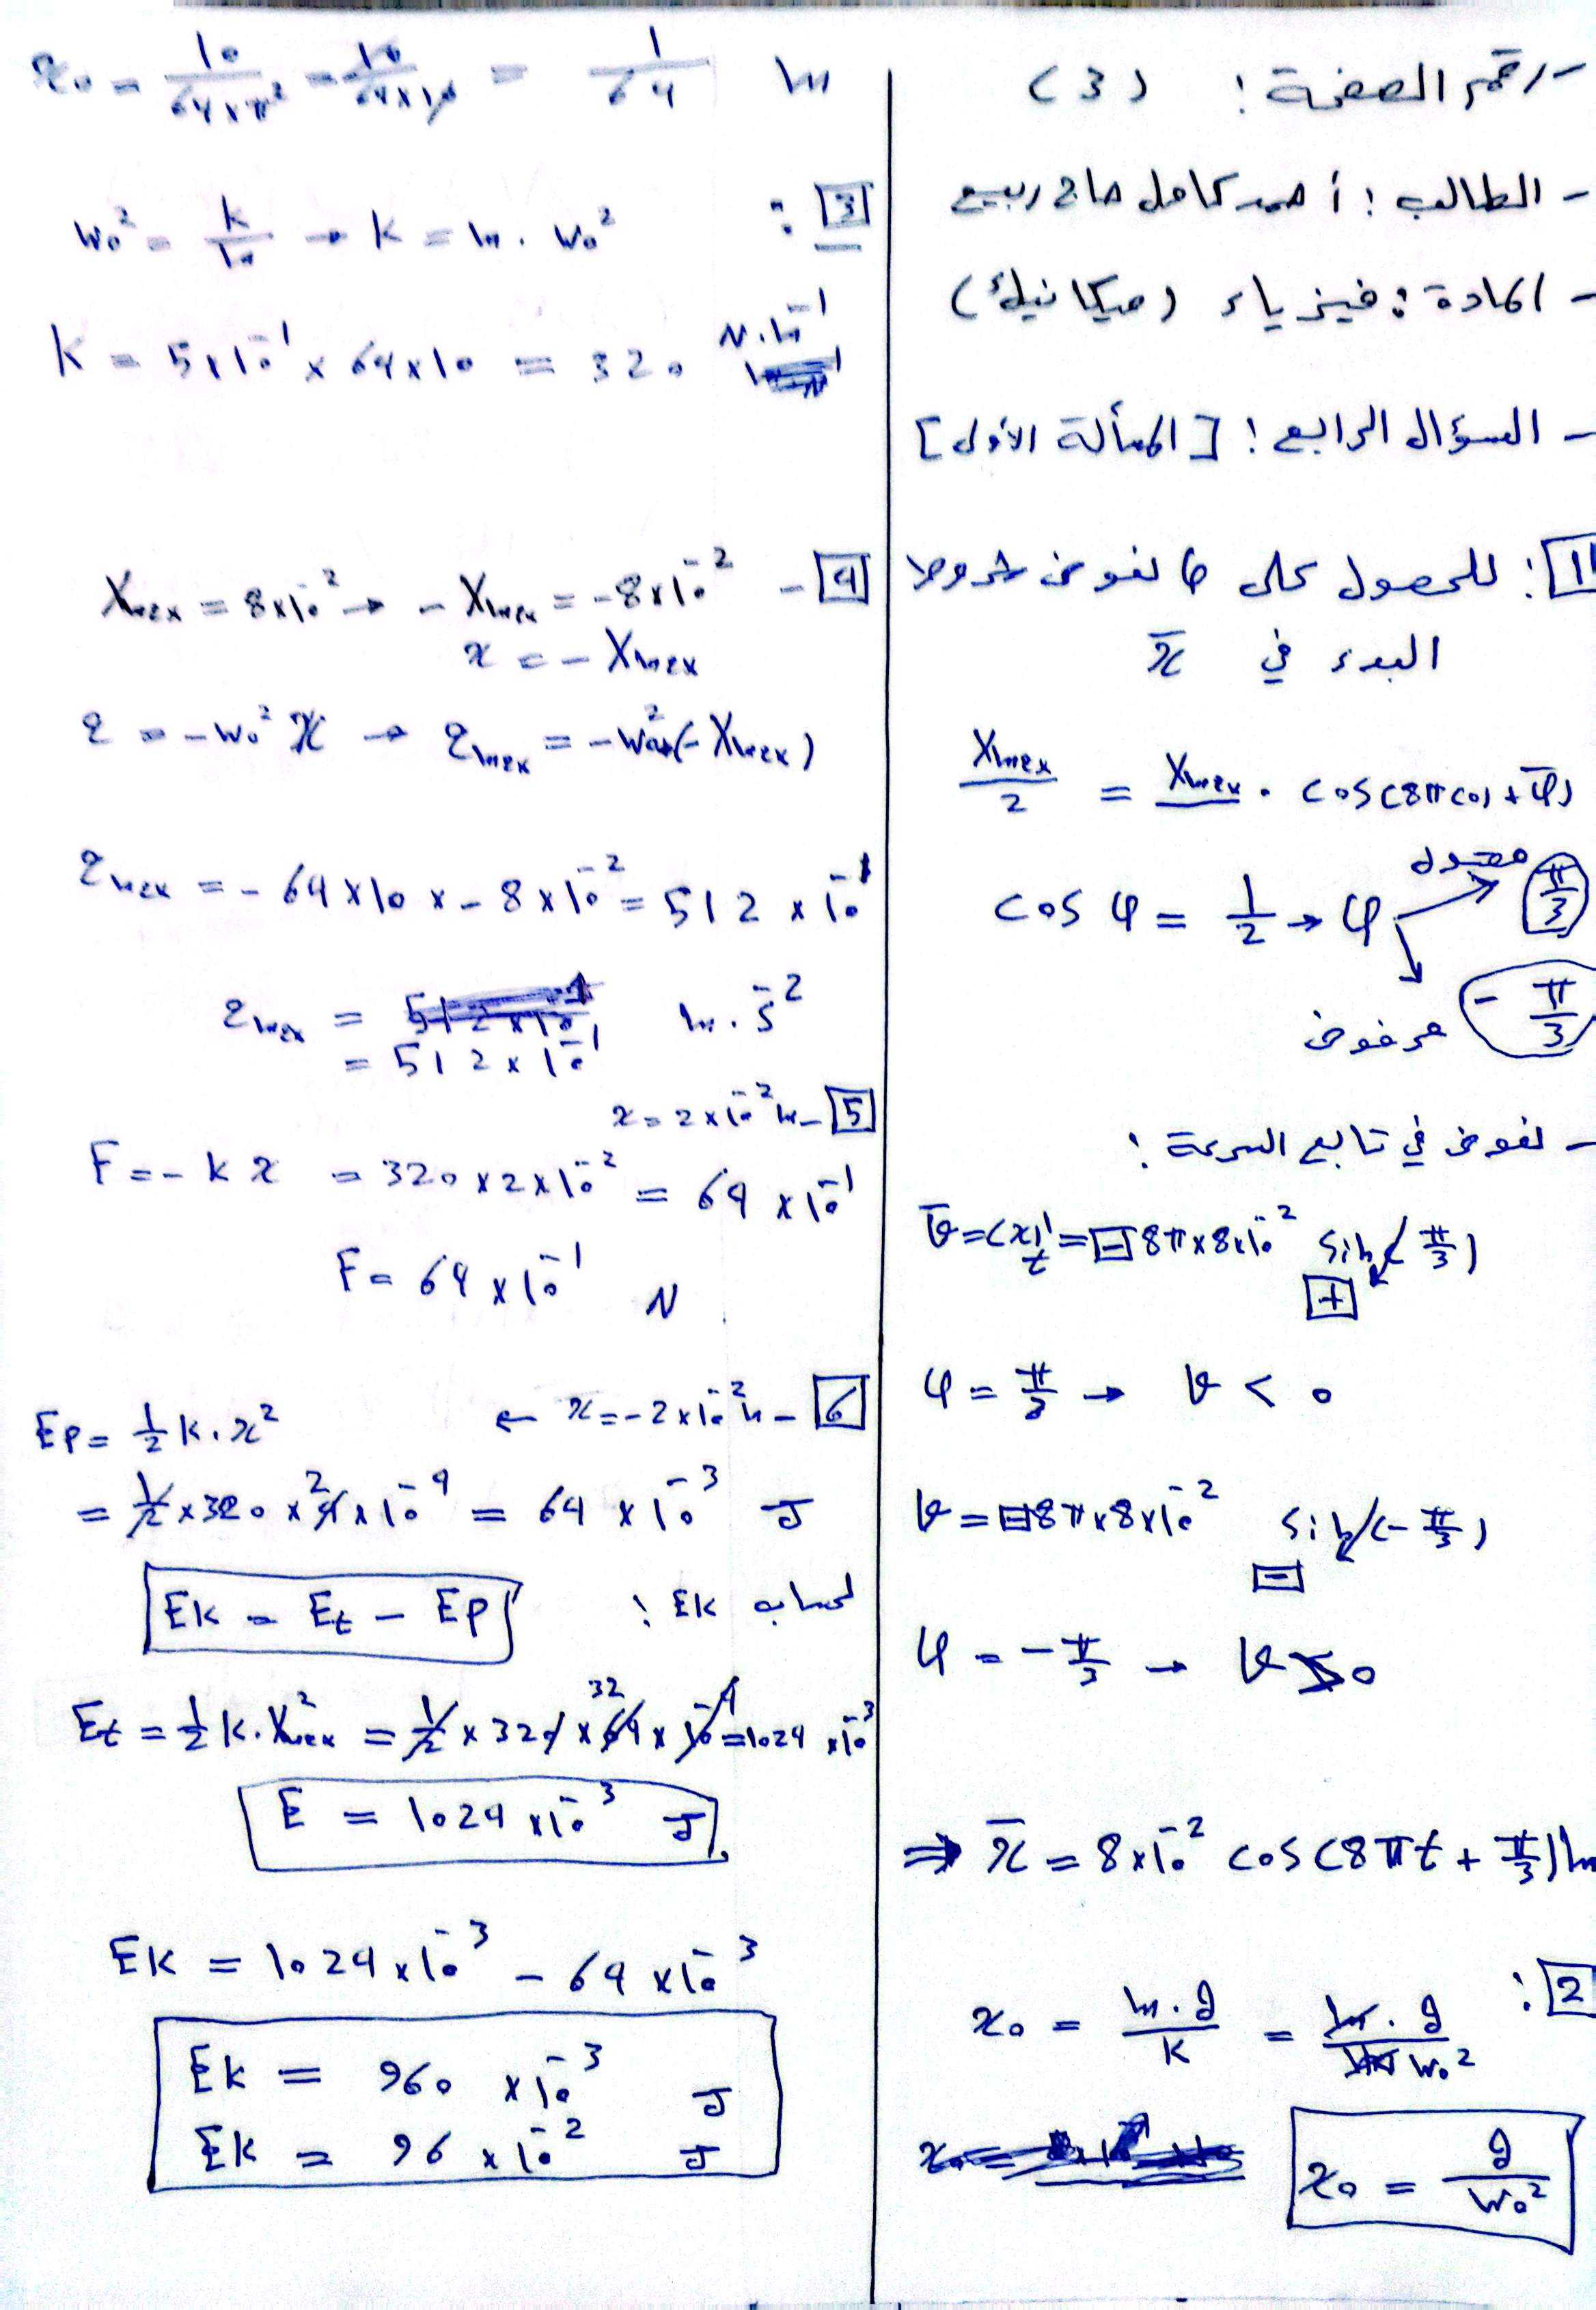 - رقم الصفحة : (3)
- الطالب : أحمد كامل حاج ربيع
- المادة : فيزياء (ميكانيك)
- السؤال الرابع : [المسألة الأولى]
1 : للحصول على φ نعوض شروط
البدء في x̄
Xmax/2 = Xmax . cos(8π(0) + φ̄)
cos φ = 1/2 → φ
مقبول π/3
مرفوض - π/3
- نعوض في تابع السرعة :
v̄ = (x)'t = - 8π × 8×10⁻² sin(π/3)
+
φ = π/3 → v < 0
v = - 8π × 8×10⁻² sin(- π/3)
-
φ = - π/3 → v > 0
⇒ x̄ = 8×10⁻² cos(8πt + π/3) m
2 :
x₀ = m.g/k = m.g/m w₀²
x₀ = g/w₀²
x₀ = 10/64×π² = 10/64×10 = 1/64 m
3 :
w₀² = k/m → k = m . w₀²
k = 5×10⁻¹ × 64×10 = 320 N.m⁻¹
4 -
Xmax = 8×10⁻² → - Xmax = -8×10⁻²
x = - Xmax
a = -w₀² x → amax = -w₀²(- Xmax)
amax = - 64 × 10 × - 8 × 10⁻² = 512 × 10⁻¹
amax = m . s⁻²
= 512 × 10⁻¹
5 - x = 2 × 10⁻² m
F = - k x = 320 × 2 × 10⁻² = 64 × 10⁻¹
F = 64 × 10⁻¹ N
6 - x = - 2 × 10⁻² m ←
Ep = 1/2 k . x²
= 1/2 × 320 × 4 × 10⁻⁴ = 64 × 10⁻³ J
لحساب Ek :
Ek = Et - Ep
Et = 1/2 k . Xmax² = 1/2 × 320 × 64 × 10⁻⁴ = 1024 × 10⁻³
E = 1024 × 10⁻³ J
Ek = 1024 × 10⁻³ - 64 × 10⁻³
Ek = 960 × 10⁻³ J
Ek = 96 × 10⁻² J